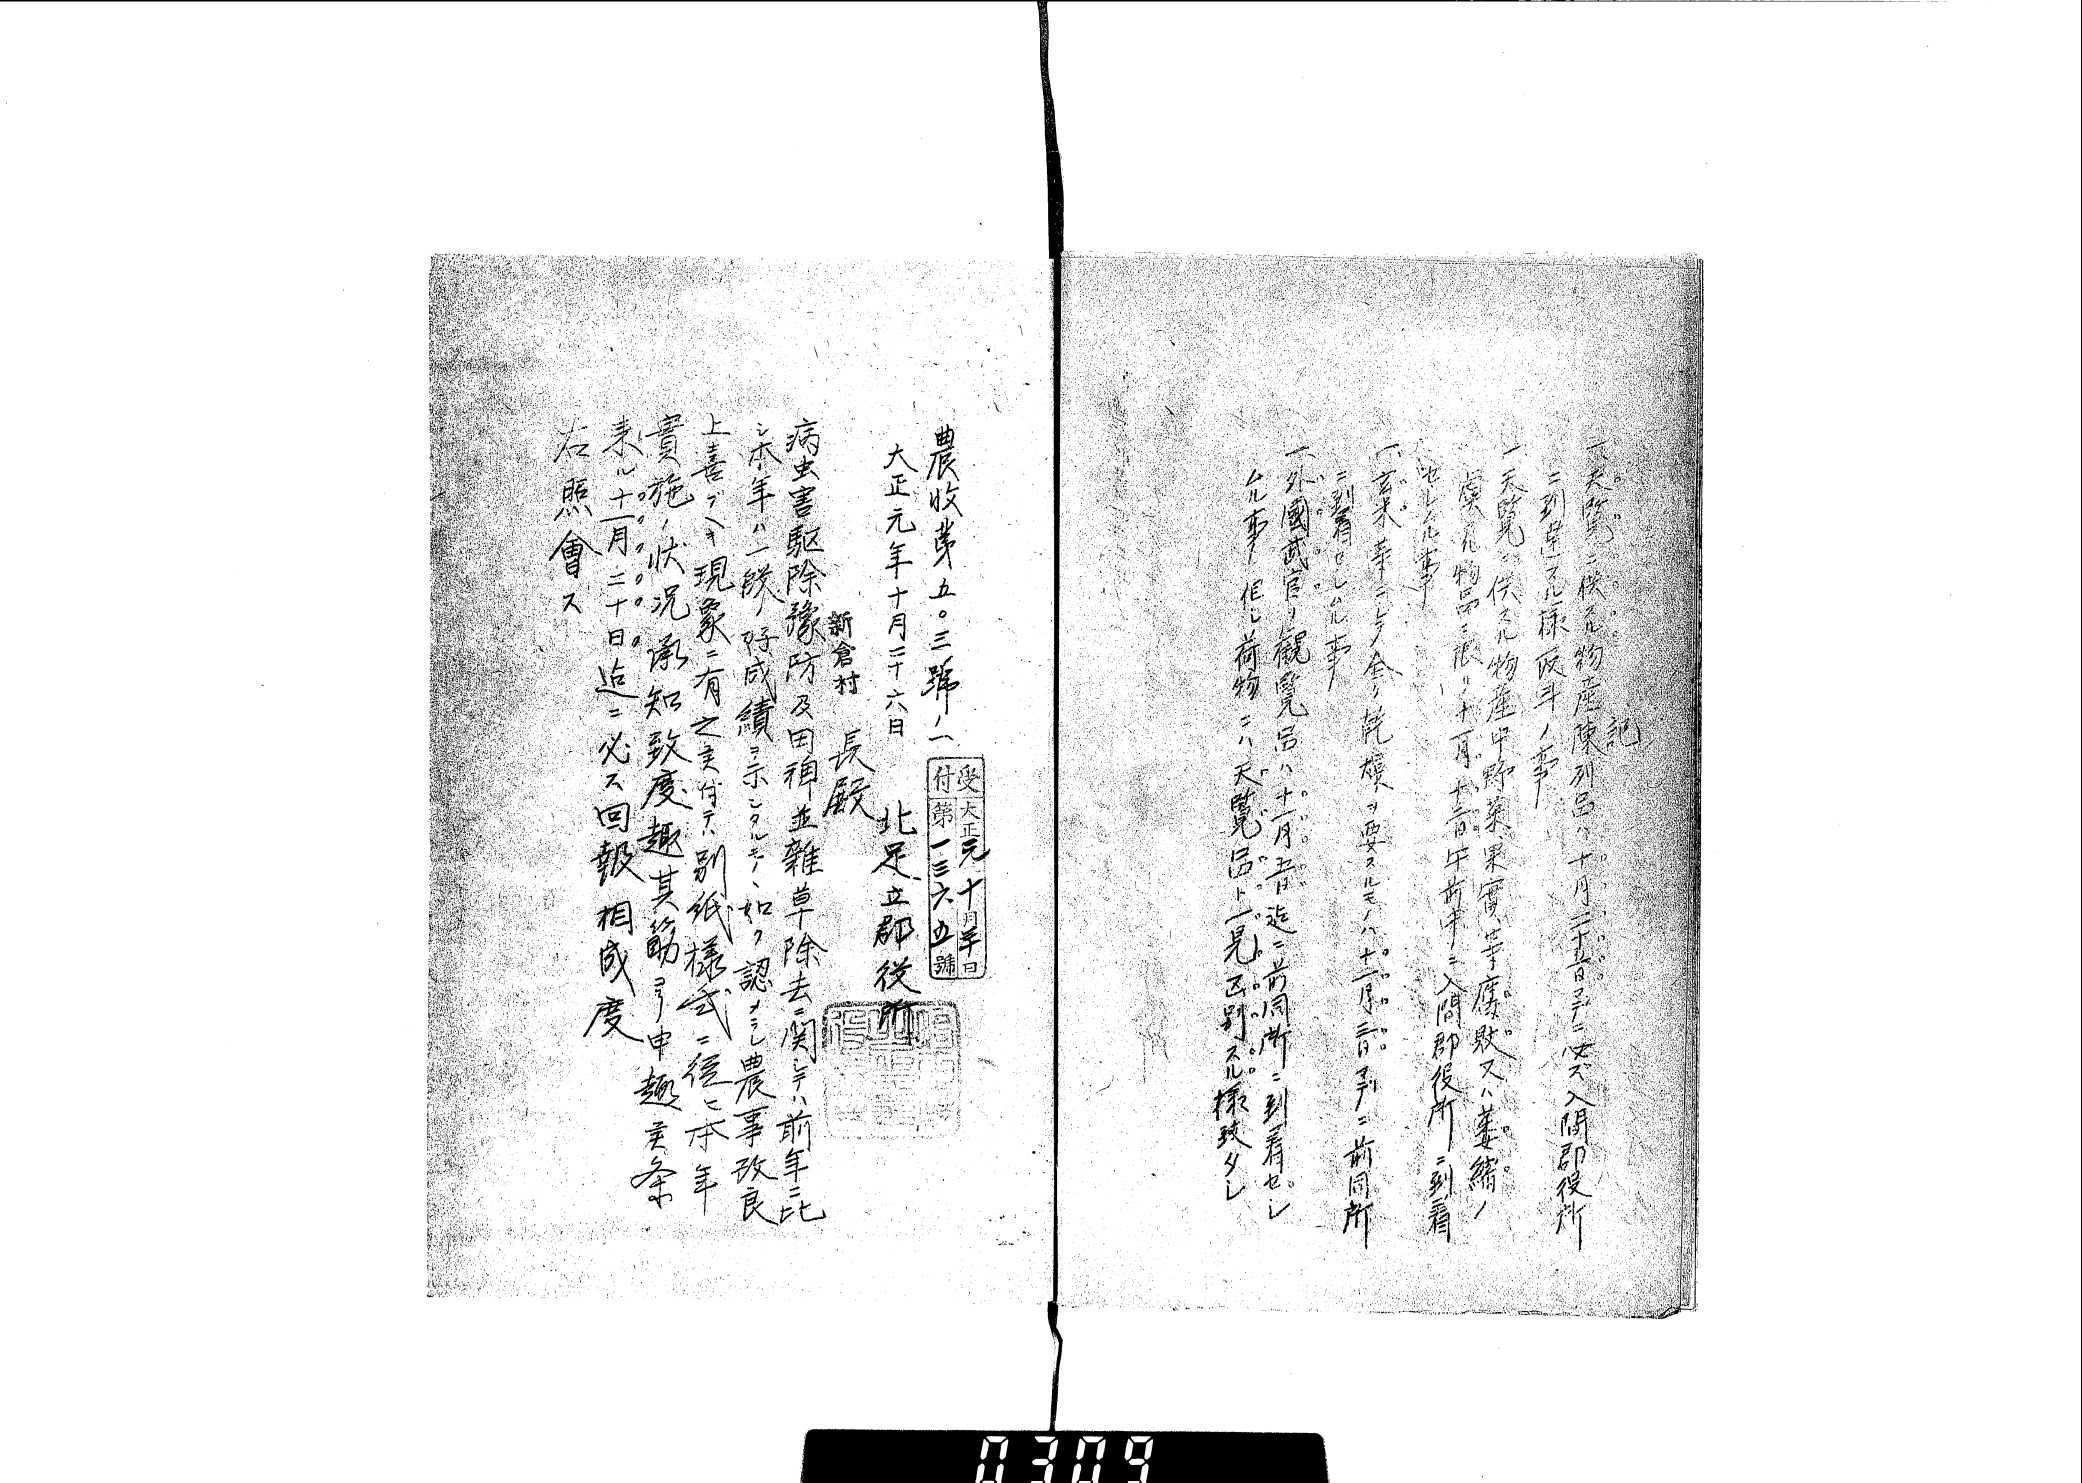 記
一、天覧ニ供スル物産陳列品ハ十月二十五日マデニ必ズ入間郡役所
ニ到達スル様取斗ノ事
一天覧ニ供スル物産中野菜果實等腐敗又ハ萎縮ノ
虞アル物品ニ限リ十一月十三日午前中ニ入間郡役所ニ到着
セシムル事
一、玄米等ニシテ全ク
ヲ要スルモノハ十一月三日マデニ前同所
ニ到着セシムル事
一外國武官ノ觀覧品ハ十一月五日迄ニ前同所ニ到着セシ
ムル事 但し荷物ニハ天覧品ト一見区別スル様致タシ
農收第五〇三號ノ一
大正元年十月二十六日
受付
大正元十月 日
第一三六五號
北足立郡役所
新倉村長殿
病虫害駆除豫防及田稗並雜草除去ニ関シテハ前年ニ比
シ本年ハ一般ノ好成績ヲ示シタルモノヽ如ク認メラレ農事改良
上喜ブヘキ現象ニ有之候付テハ別紙様式ニ従ヒ本年
實施ノ状况承知致度趣其筋ヨリ申越候条
来ル十一月二十日迄ニ必ス回報相成度
右照會ス
0309